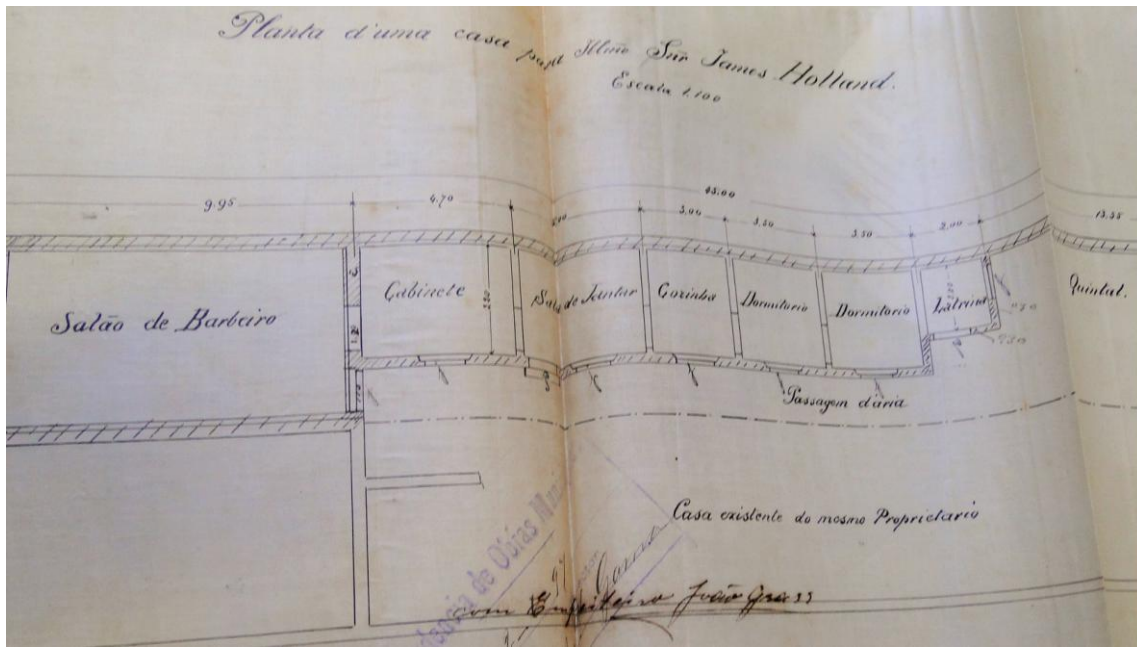 Planta d'uma casa para Illmo Snr James Holland.
Escala 1.100
45.00
9.95 4.70 3.00 3.50 3.50 2.00 13.35
Salão de Barbeiro
Gabinete
Sala de Jantar
Cozinha
Dormitorio
Dormitorio
Latrina
Quintal.
1.20
Passagem d'aria
Casa existente do mesmo Proprietario
de Obras
Empiteiro João Grass